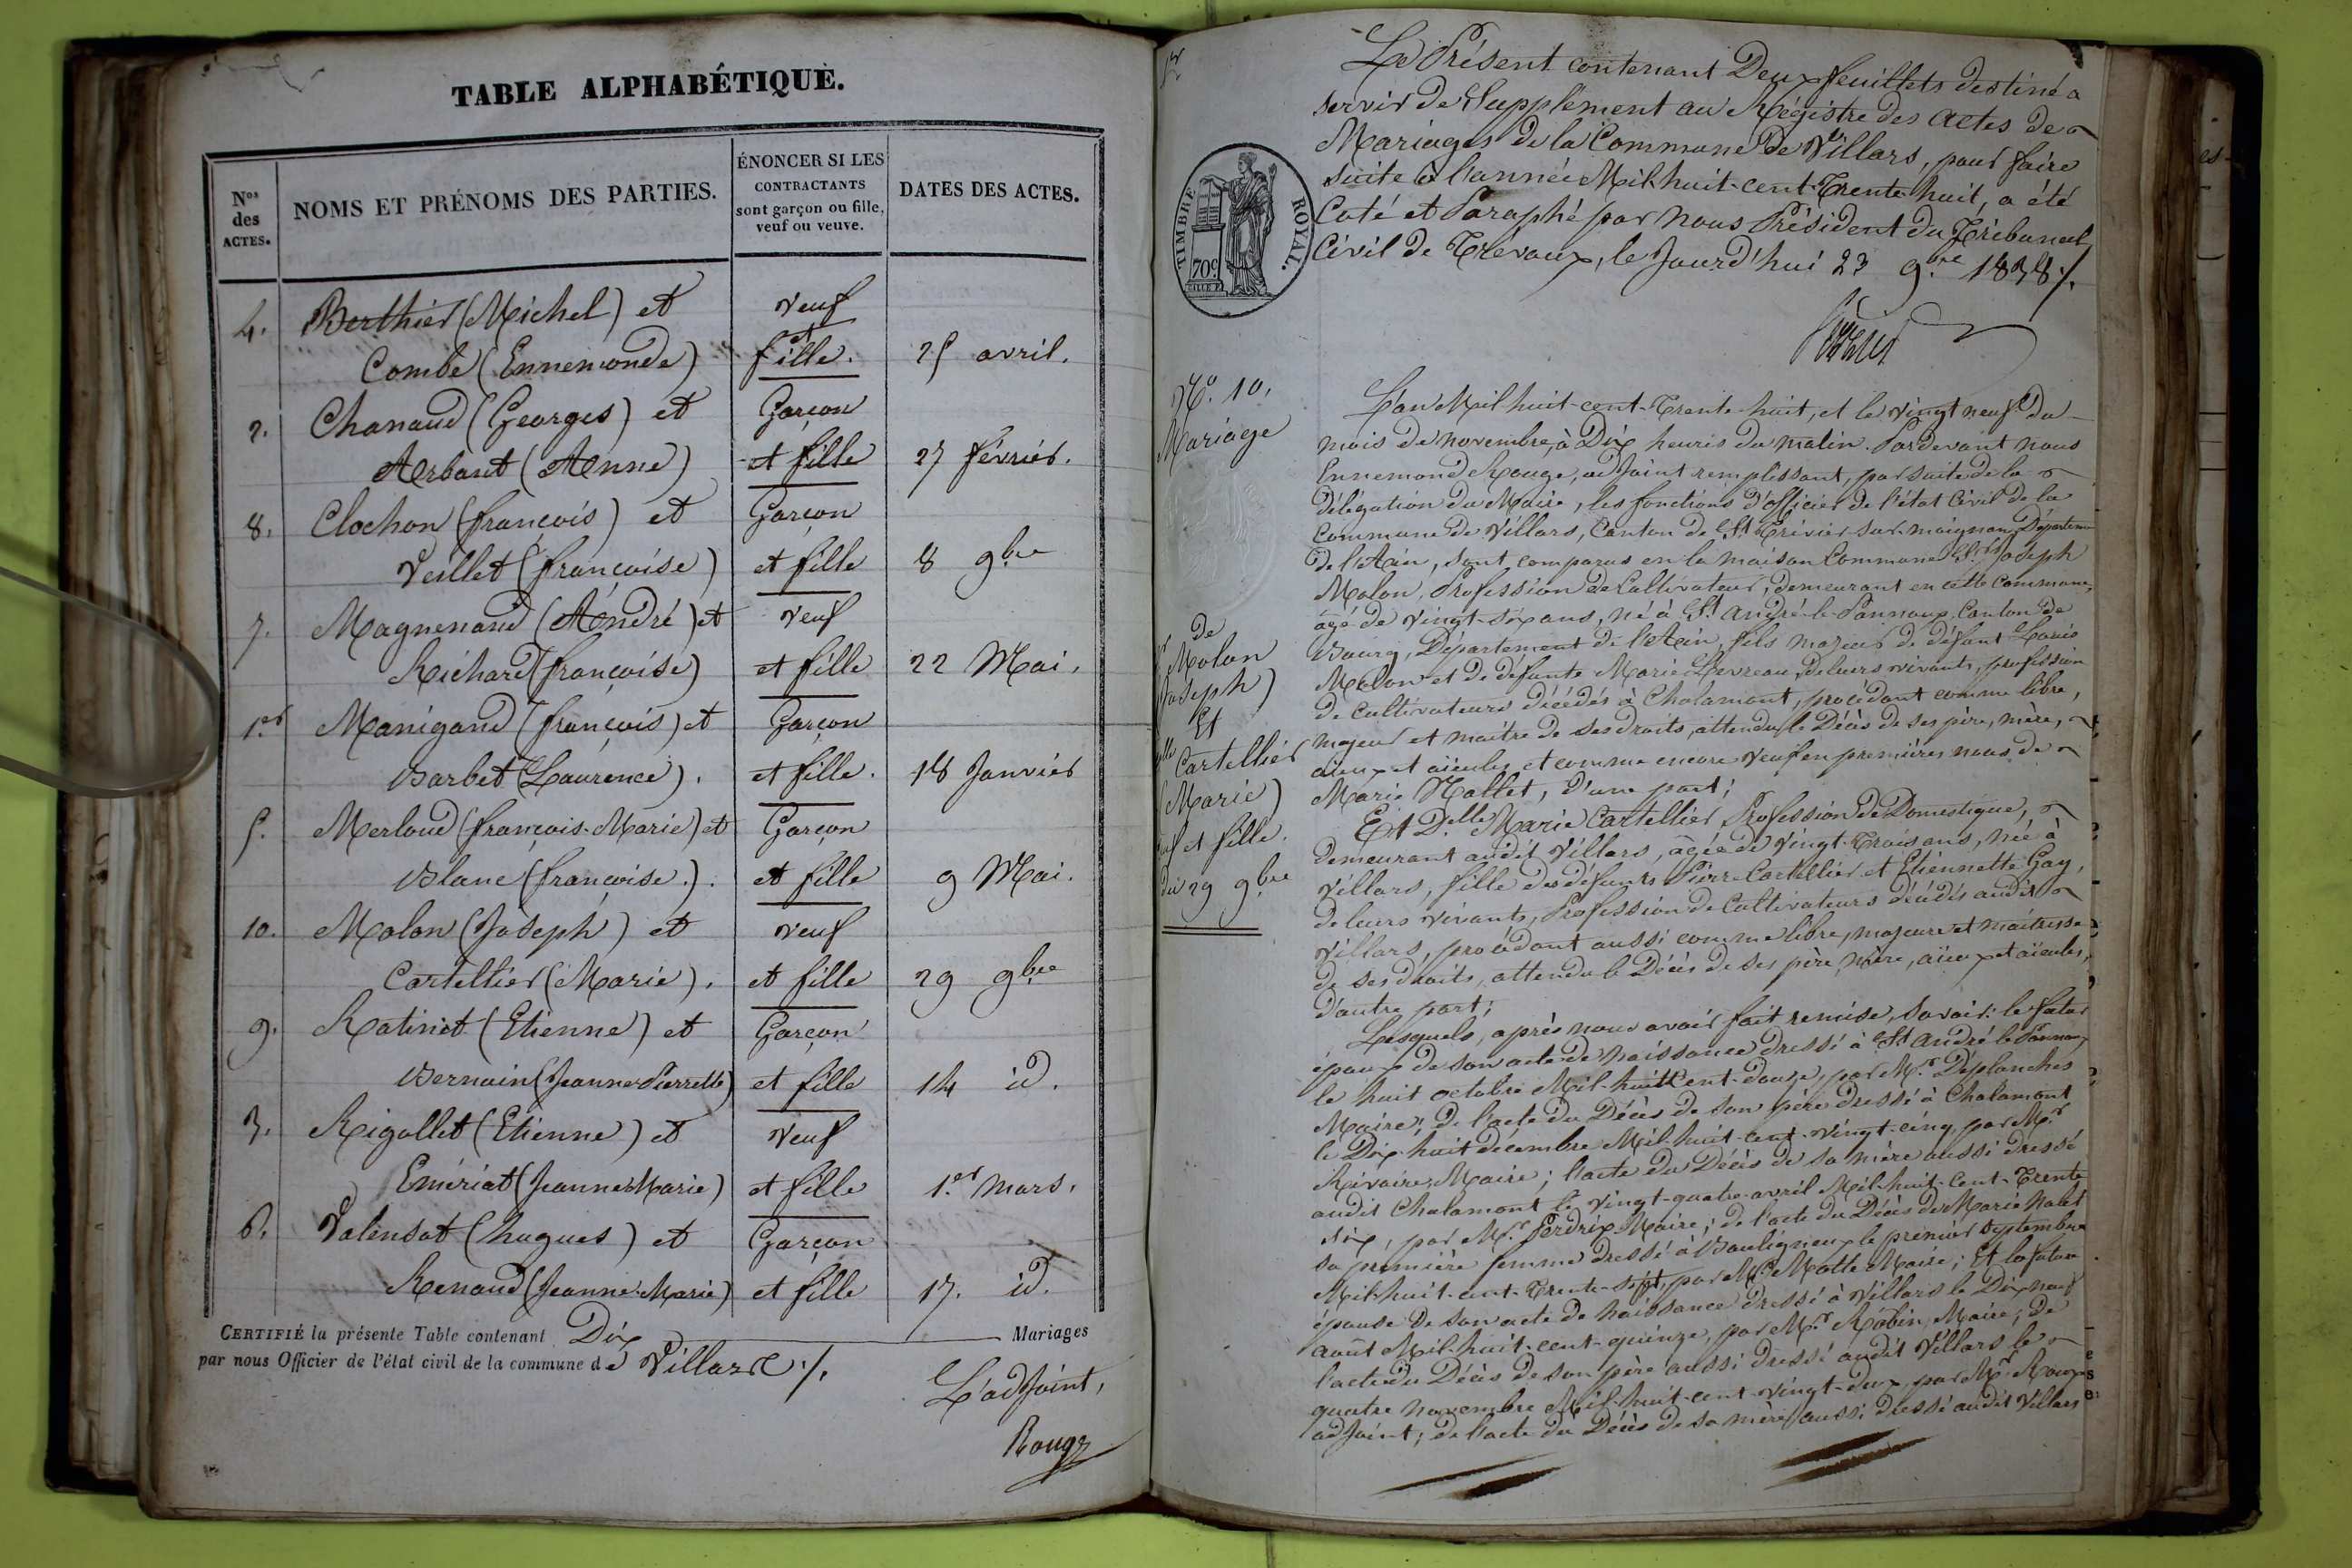 TABLE ALPHABÉTIQUE.
Nos des ACTES.
NOMS ET PRÉNOMS DES PARTIES.
ÉNONCER SI LES CONTRACTANTS sont garçon ou fille, veuf ou veuve.
DATES DES ACTES.
4. Berthier (Michel) et veuf
Combe (Ennemonde) et fille. 25 avril.
2. Chanaud (Georges) et Garçon
Arbant (Anne) et fille 27 février.
8. Clochon (françois) et Garçon
Veillet (françoise) et fille 8 9bre
7. Magnenaud (André) et veuf
Richard (françoise) et fille 22 Mai.
1er Manigand (françois) et Garçon
Barbet (Laurence). et fille. 18 Janvier
5. Merloud (françois-Marie) et Garçon
Blanc (françoise.). et fille 9 Mai.
10. Molon (Joseph) et veuf
Cartellier (Marie). et fille 29 9bre
9. Ratinot (Etienne) et Garçon
Bernain (Jeanne Pierrette) et fille 14 id.
3. Rigollet (Etienne) et veuf
Emériat (Jeanne Marie) et fille 1.er Mars.
6. Valensot (hugues) et Garçon
Renaud (Jeanne-Marie) et fille 17. id.
CERTIFIÉ la présente Table contenant Dix Mariages
par nous Officier de l'état civil de la commune de Villars ./.
L'adjoint,
Rouge
Le Présent contenant Deux feuillets destiné a
servir de Supplément au Régistre des actes de
Mariages de la Commune de Villars, pour faire
suite à l'année Mil-huit-cent-Trente huit, a été
Coté et Paraphé par nous Président du Tribunal
Civil de Trévoux, le Jourd'hui 23 9.bre 1838 ./.
TIMBRE ROYAL.
70c
No. 10.
Mariage
de
Molon
(Joseph)
Et
Cartellier
(Marie)
et fille.
du 29 9bre
L'an Mil huit-cent-Trente-huit, et le vingt neuf du
mois de novembre, à Dix heures du matin. Pardevant nous
Ennemond Rouge, adjoint remplissant, par suite de la
délégation du Maire, les fonctions d'officier de l'état civil de la
Commune de Villars, Canton de St Trivier-sur-moignans, Départem
de l'Ain, sont comparus en la maison Commune Sr. Joseph
Molon, Profession de Cultivateur, demeurant en cette commune,
âgé de vingt-six ans, né à St André-le-Pannoux, Canton de
Bourg, Département de l'Ain, fils majeur de défunt Louis
Molon et de défunte Marie Levreau, de leurs vivants, profession
de cultivateurs décédés à Chalamont, procédant comme libre,
majeur et maître de ses droits, attendu le Décès de ses père, mère,
aieux et aïeules, et comme encore veuf en premières noces de
Marie Nallet, d'une part;
Et D.elle Marie Cartellier, Profession de Domestique,
demeurant audit Villars, âgée de vingt-Trois ans, née à
Villars, fille des défunts Pierre Cartellier et Etiennette Gay,
de leurs vivants, Profession de Cultivateurs décédés audit
Villars, procédant aussi comme libre, majeure et maitresse
de ses droits, attendu le Décès de ses père, mère, aïeux et aïeules,
d'autre part;
Lesquels, après nous avoir fait remise, savoir: le futur
époux de son acte de naissance dressé à St André le Pannoux
le huit octobre Mil-huit Cent-douze, par Mr. Desplanches
Maire; de l'acte du Décès de son père dressé à Chalamont
le Dix-huit décembre Mil-huit-cent-vingt-cinq, par Mr
Rivoire, Maire; l'acte du Décès de sa mère aussi dressé
audit Chalamont le vingt-quatre avril Mil-huit-Cent-Trente
six, par Mr. Perdrix, Maire; de l'acte du Décès de Marie Nalet
sa première femme dressé à Bouligneux le premier septembre
Mil-huit-cent-Trente-sept, par Mr Motte Maire; Et la future
épouse de son acte de naissance dressé à Villars le Dix-neuf
août Mil-huit-cent-quinze, par Mr Robin, Maire; de
l'acte du Décès de son père aussi dressé audit Villars le
quatre novembre Mil-huit-cent-vingt-deux, par Mr. Rouge
adjoint; de l'acte du Décès de sa mère aussi dressé audit Villars